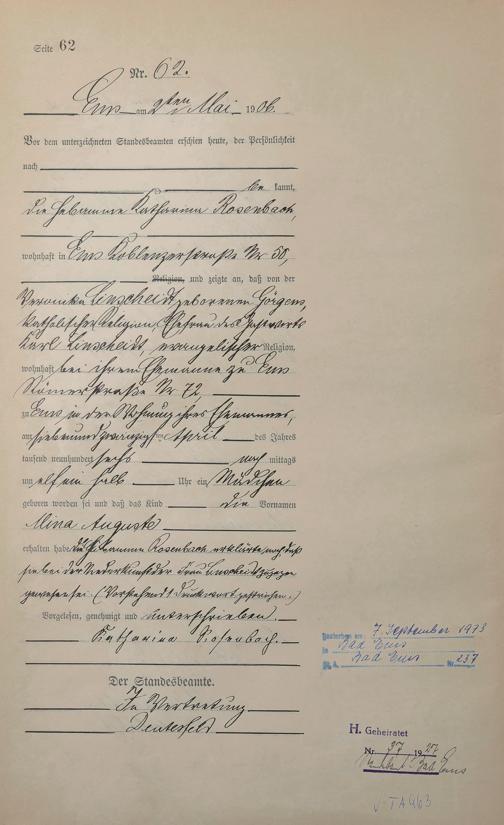 Seite 62
Nr. 62.
Ems am 2ten Mai 1906.
Vor dem unterzeichneten Standesbeamten erschien heute, der Persönlichkeit
nach
be kannt,
die Hebamme Katharina Rosenbach,
wohnhaft in Ems Koblenzerstraße Nr 50,
Religion, und zeigte an, daß von der
Veronika Linscheidt geborenen Görgens,
katholischer Religion, Ehefrau des Gastwirts
Karl Linscheidt, evangelischer Religion,
wohnhaft bei ihrem Ehemanne zu Ems
Römerstraße Nr 72,
zu Ems in der Wohnung ihres Ehemannes,
am siebenundzwanzigsten April des Jahres
tausend neunhundert sechs nach mittags
um elf ein halb Uhr ein Mädchen
geboren worden sei und daß das Kind die Vornamen
Mina Auguste
erhalten habe. Die Hebamme Rosenbach erklärte noch daß
sie bei der Niederkunft der Frau Linscheidt zugegen
gewesen sei. (Vorstehend 1 Druckwort gestrichen.)
Vorgelesen, genehmigt und unterschrieben.
Katharina Rosenbach.
Der Standesbeamte.
In Vertretung
Gestorben am: 7. September 1973
in Bad Ems
St. A. Bad Ems Nr. 237
H. Geheiratet
Nr. 37 1927
Bad Ems